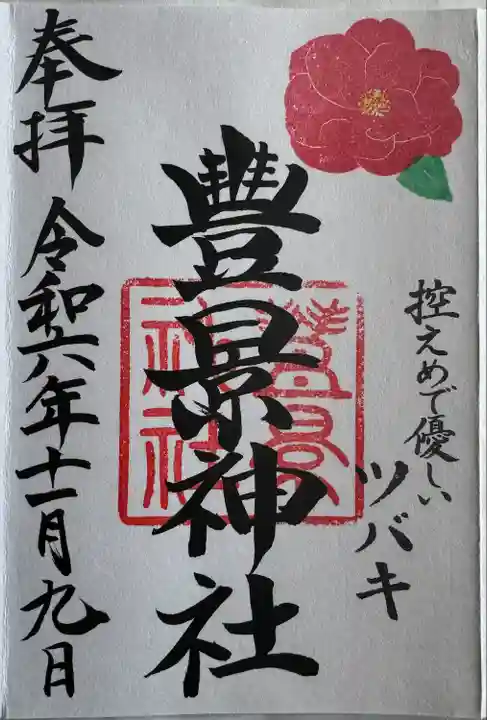 控えめで優しい
ツバキ
豊景神社
豐景神社
奉拝
令和六年十一月九日